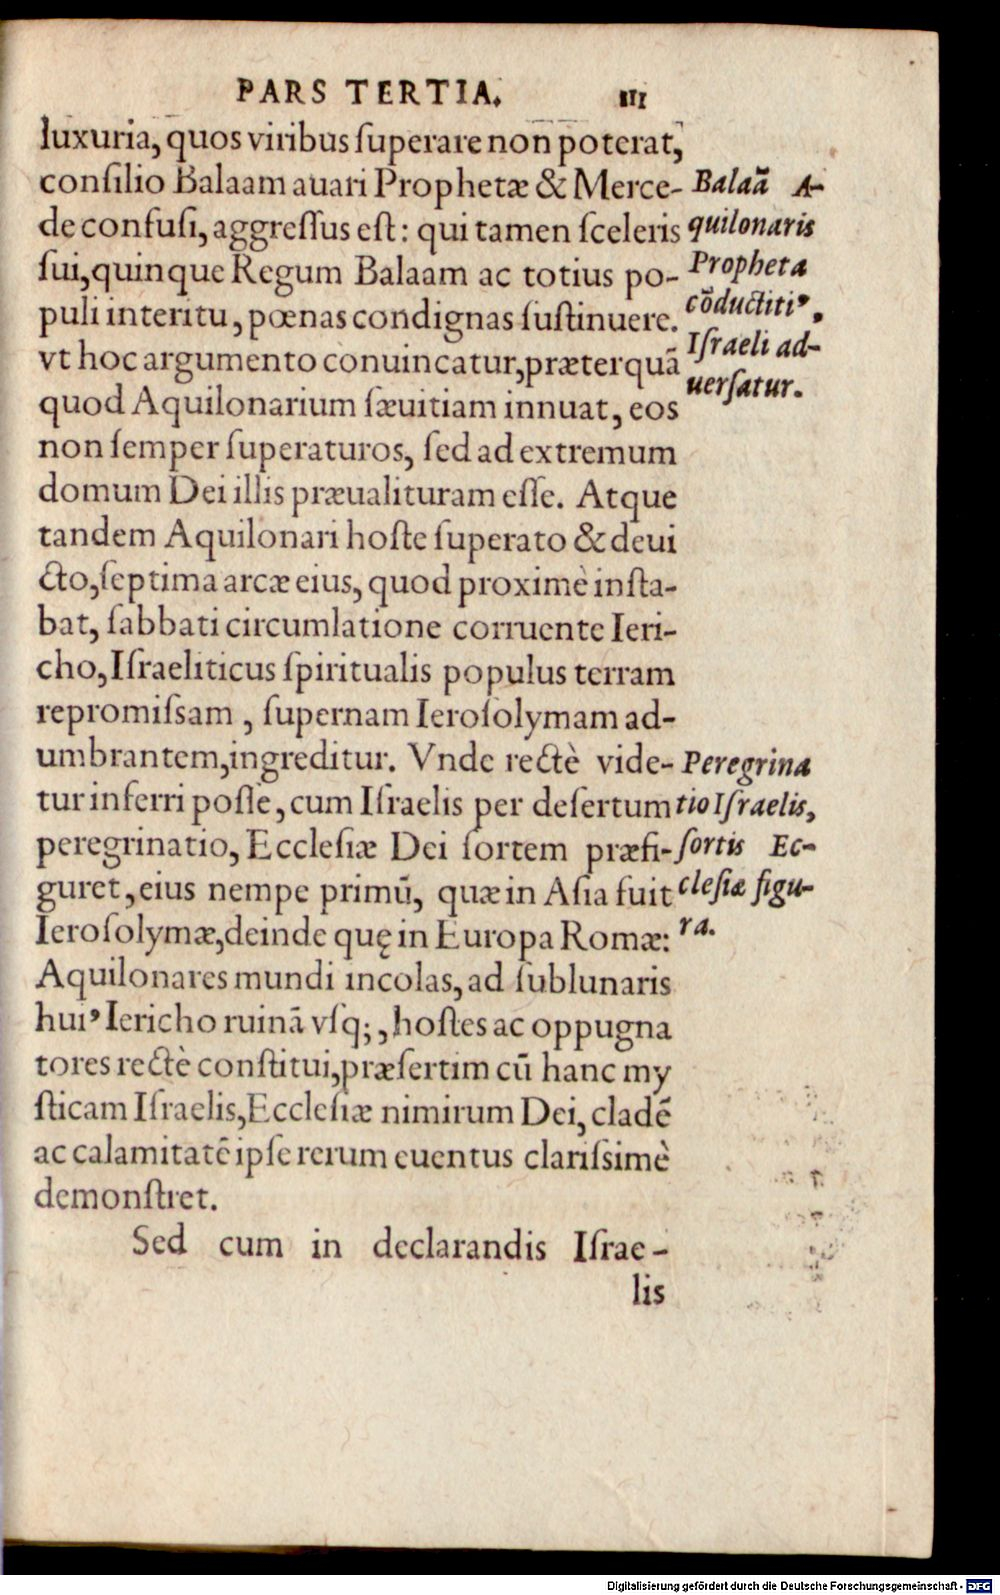 PARS TERTIA. 111
luxuria, quos viribus ſuperare non poterat,
conſilio Balaam auari Prophetæ & Merce-
de confuſi, aggreſſus eſt: qui tamen ſceleris
ſui, quinque Regum Balaam ac totius po-
puli interitu, pœnas condignas ſuſtinuere.
vt hoc argumento conuincatur, præterquā
quod Aquilonarium ſæuitiam innuat, eos
non ſemper ſuperaturos, ſed ad extremum
domum Dei illis præualituram eſſe. Atque
tandem Aquilonari hoſte ſuperato & deui
cto, ſeptima arcæ eius, quod proximè inſta-
bat, ſabbati circumlatione corruente Ieri-
cho, Iſraeliticus ſpiritualis populus terram
repromiſsam, ſupernam Ieroſolymam ad-
umbrantem, ingreditur. Vnde rectè vide-
tur inferri poſſe, cum Iſraelis per deſertum
peregrinatio, Eccleſiæ Dei ſortem præfi-
guret, eius nempe primū, quæ in Aſia fuit
Ieroſolymæ, deinde quę in Europa Romæ:
Aquilonares mundi incolas, ad ſublunaris
huiꝰ Iericho ruinā vſq;, hoſtes ac oppugna
tores rectè conſtitui, præſertim cū hanc my
ſticam Iſraelis, Eccleſiæ nimirum Dei, cladē
ac calamitatē ipſe rerum euentus clariſsimè
demonſtret.
Sed cum in declarandis Iſrae-
lis
Balaā A-
quilonaris
Propheta
cōductitiꝰ,
Iſraeli ad-
uerſatur.
Peregrina
tio Iſraelis,
ſortis Ec-
cleſiæ figu-
ra.
Digitalisierung gefördert durch die Deutsche Forschungsgemeinschaft - DFG